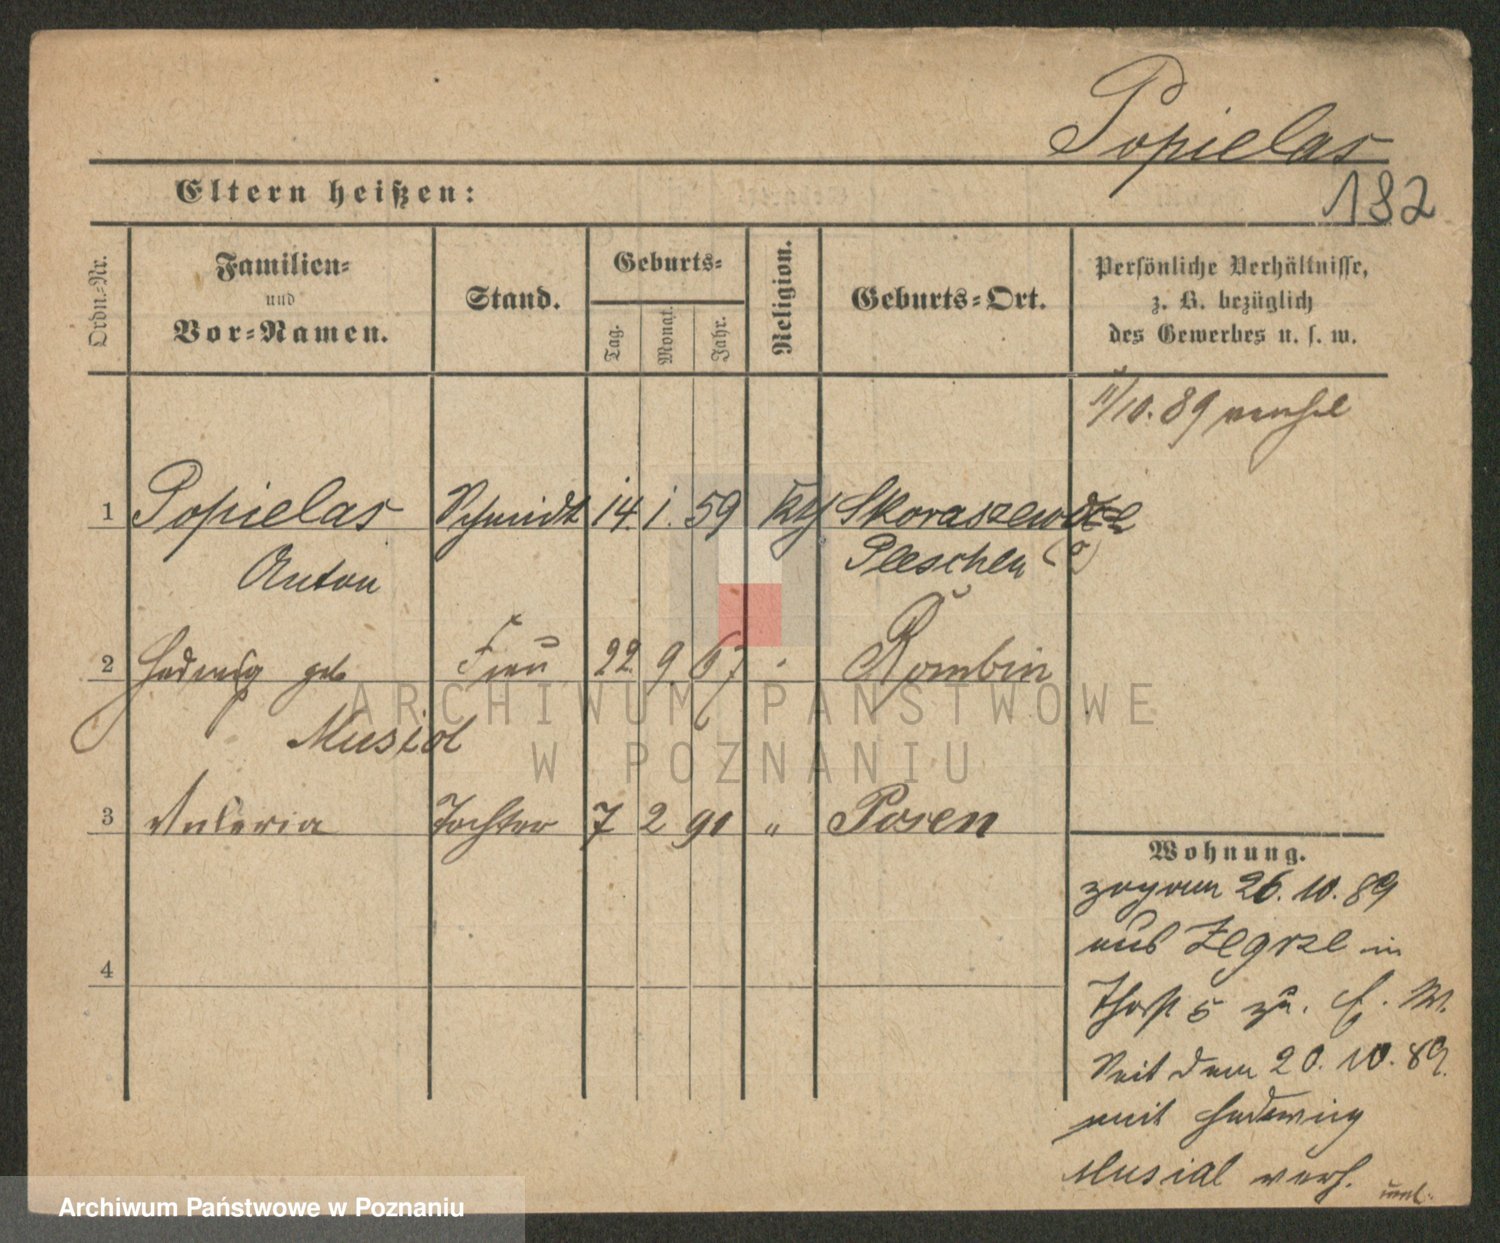 Popielas
182
Eltern heißen:
Ordn.-Nr.
Familien-
und
Vor-Namen.
Stand.
Geburts-
Tag.
Monat.
Jahr.
Religion.
Geburts-Ort.
Persönliche Verhältnisse,
z. B. bezüglich
des Gewerbes u. s. w.
11/10. 89
1 Popielas Schmidt 14. 1. 59 kth Skoraszewice
Anton Pleschen
2 Hedwig geb Frau 22. 9. 67 Rombin
Musiol
3 Valeria Tochter 7 2 90 " Posen
4
Wohnung.
zogen 26. 10. 89
aus Zegrze in
Thorst 5 zu.
Seit dem 20. 10. 89.
mit Hedwig
Musial verh.
ARCHIWUM PAŃSTWOWE
W POZNANIU
Archiwum Państwowe w Poznaniu